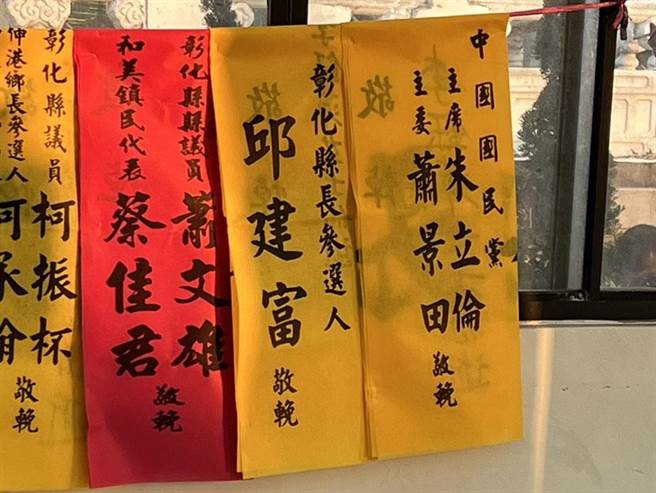 中國國民黨
主席 朱立倫
主委 蕭景田
敬輓
彰化縣長參選人
邱建富
敬輓
彰化縣縣議員 蕭文雄
和美鎮民代表 蔡佳君
敬輓
彰化縣議員 柯振杯
伸港鄉長參選人
敬輓